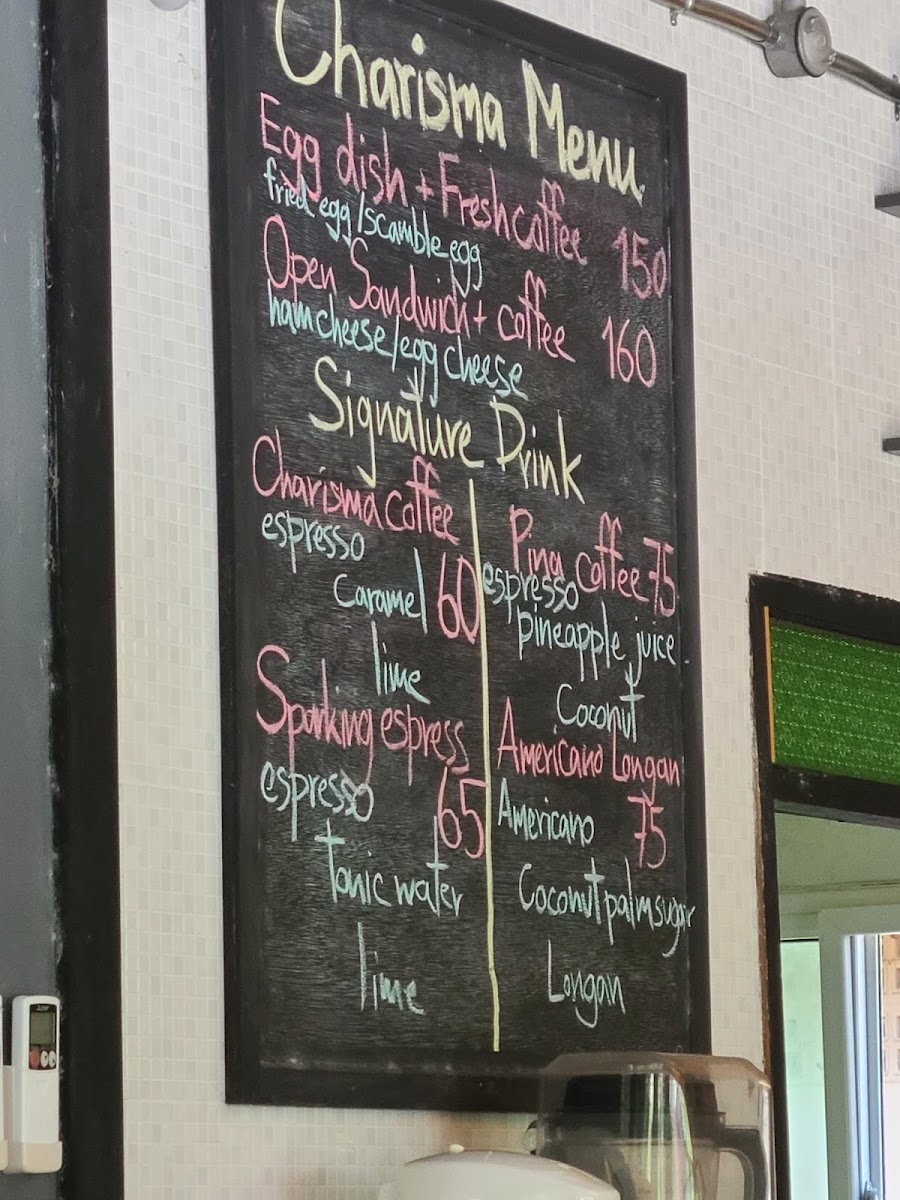 Charisma Menu
Egg dish + Fresh coffee 150
fried egg/scamble egg
Open Sandwich + coffee 160
ham cheese/egg cheese
Signature Drink
Charisma coffee
espresso
Caramel 60
lime
Sparking espress
espresso 65
tonic water
lime
Pina coffee 75
espresso
pineapple juice
Coconut
Americano Longan
Americano 75
Coconut palm sugar
Longan